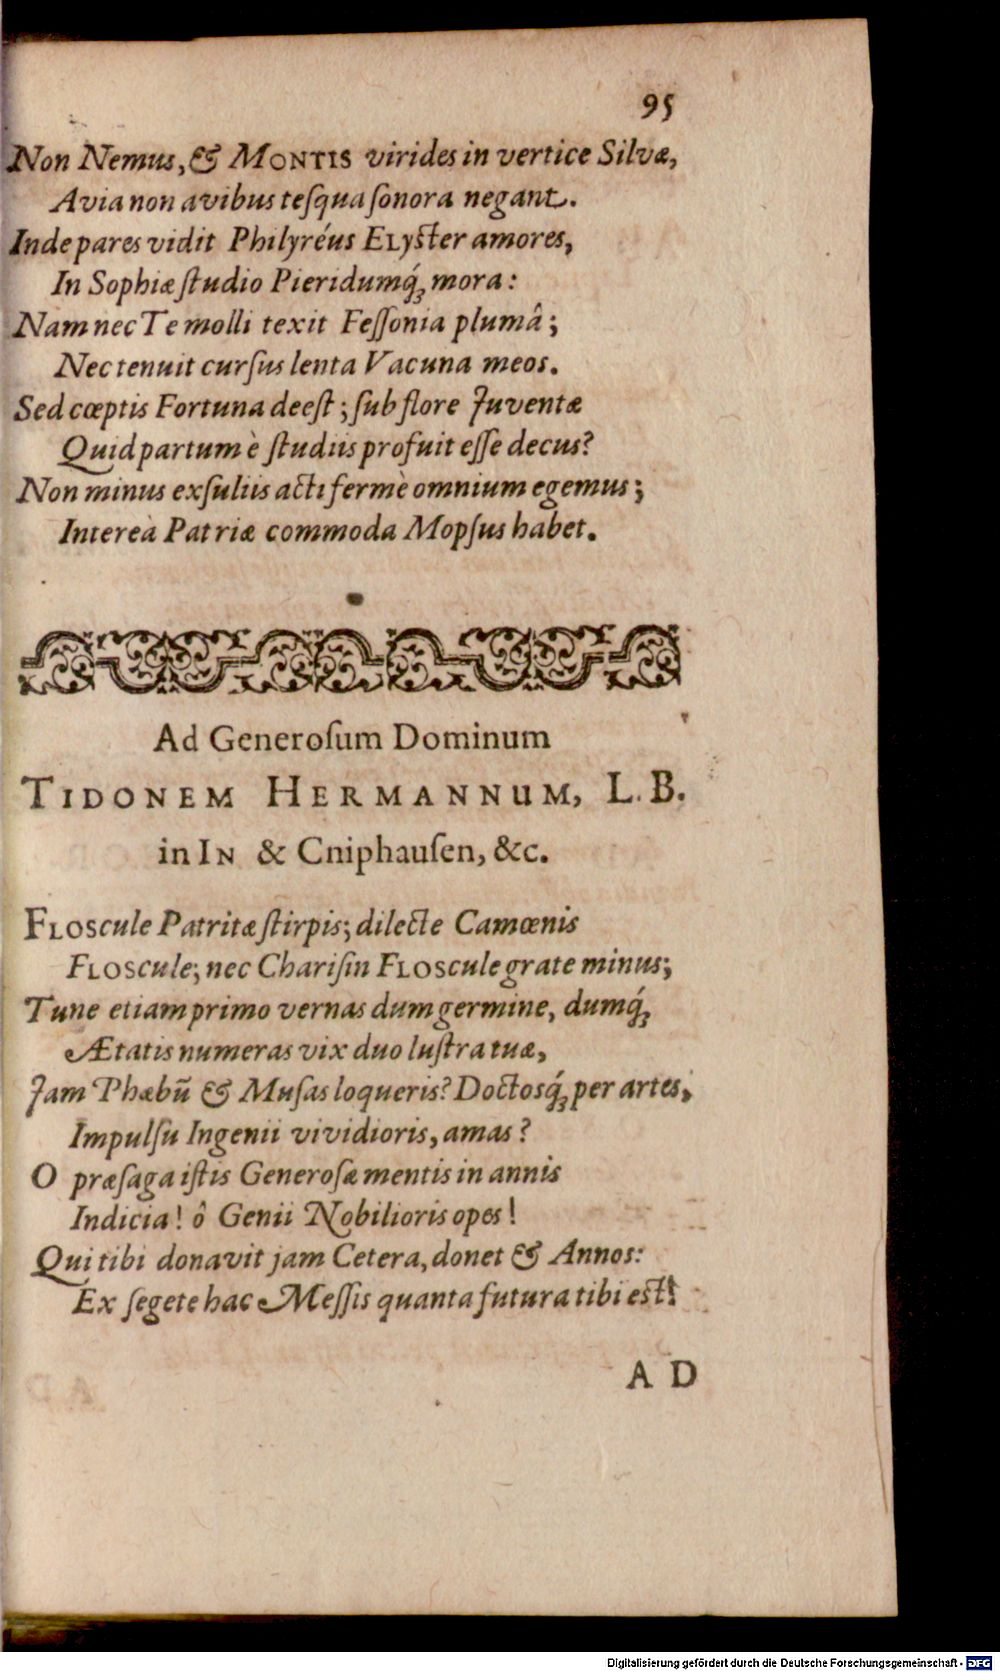 95
Non Nemus, & MONTIS virides in vertice Silvæ,
Avia non avibus teſqua ſonora negant.
Inde pares vidit Philyréus ELyſter amores,
In Sophiæ ſtudio Pieridumq́ꝫ mora:
Nam nec Te molli texit Feſſonia plumâ;
Nec tenuit curſus lenta Vacuna meos.
Sed cœptis Fortuna deeſt; ſub flore Juventæ
Quid partum è ſtudiis profuit eſſe decus?
Non minus exſuliis acti fermè omnium egemus;
Intereà Patriæ commoda Mopſus habet.
Ad Generoſum Dominum
TIDONEM HERMANNUM, L. B.
in IN & Cniphauſen, &c.
FLOScule Patritæ ſtirpis; dilecte Camœnis
FLOScule; nec Chariſin FLOScule grate minus;
Tune etiam primo vernas dum germine, dumq́ꝫ
Ætatis numeras vix duo luſtra tuæ,
Jam Phæbū & Muſas loqueris? Doctosq́ꝫ per artes,
Impulſu Ingenii vividioris, amas?
O præſaga iſtis Generoſæ mentis in annis
Indicia! ô Genii Nobilioris opes!
Qui tibi donavit jam Cetera, donet & Annos:
Ex ſegete hac Meſſis quanta futura tibi eſt!
A D
Digitalisierung gefördert durch die Deutsche Forschungsgemeinschaft - DFG